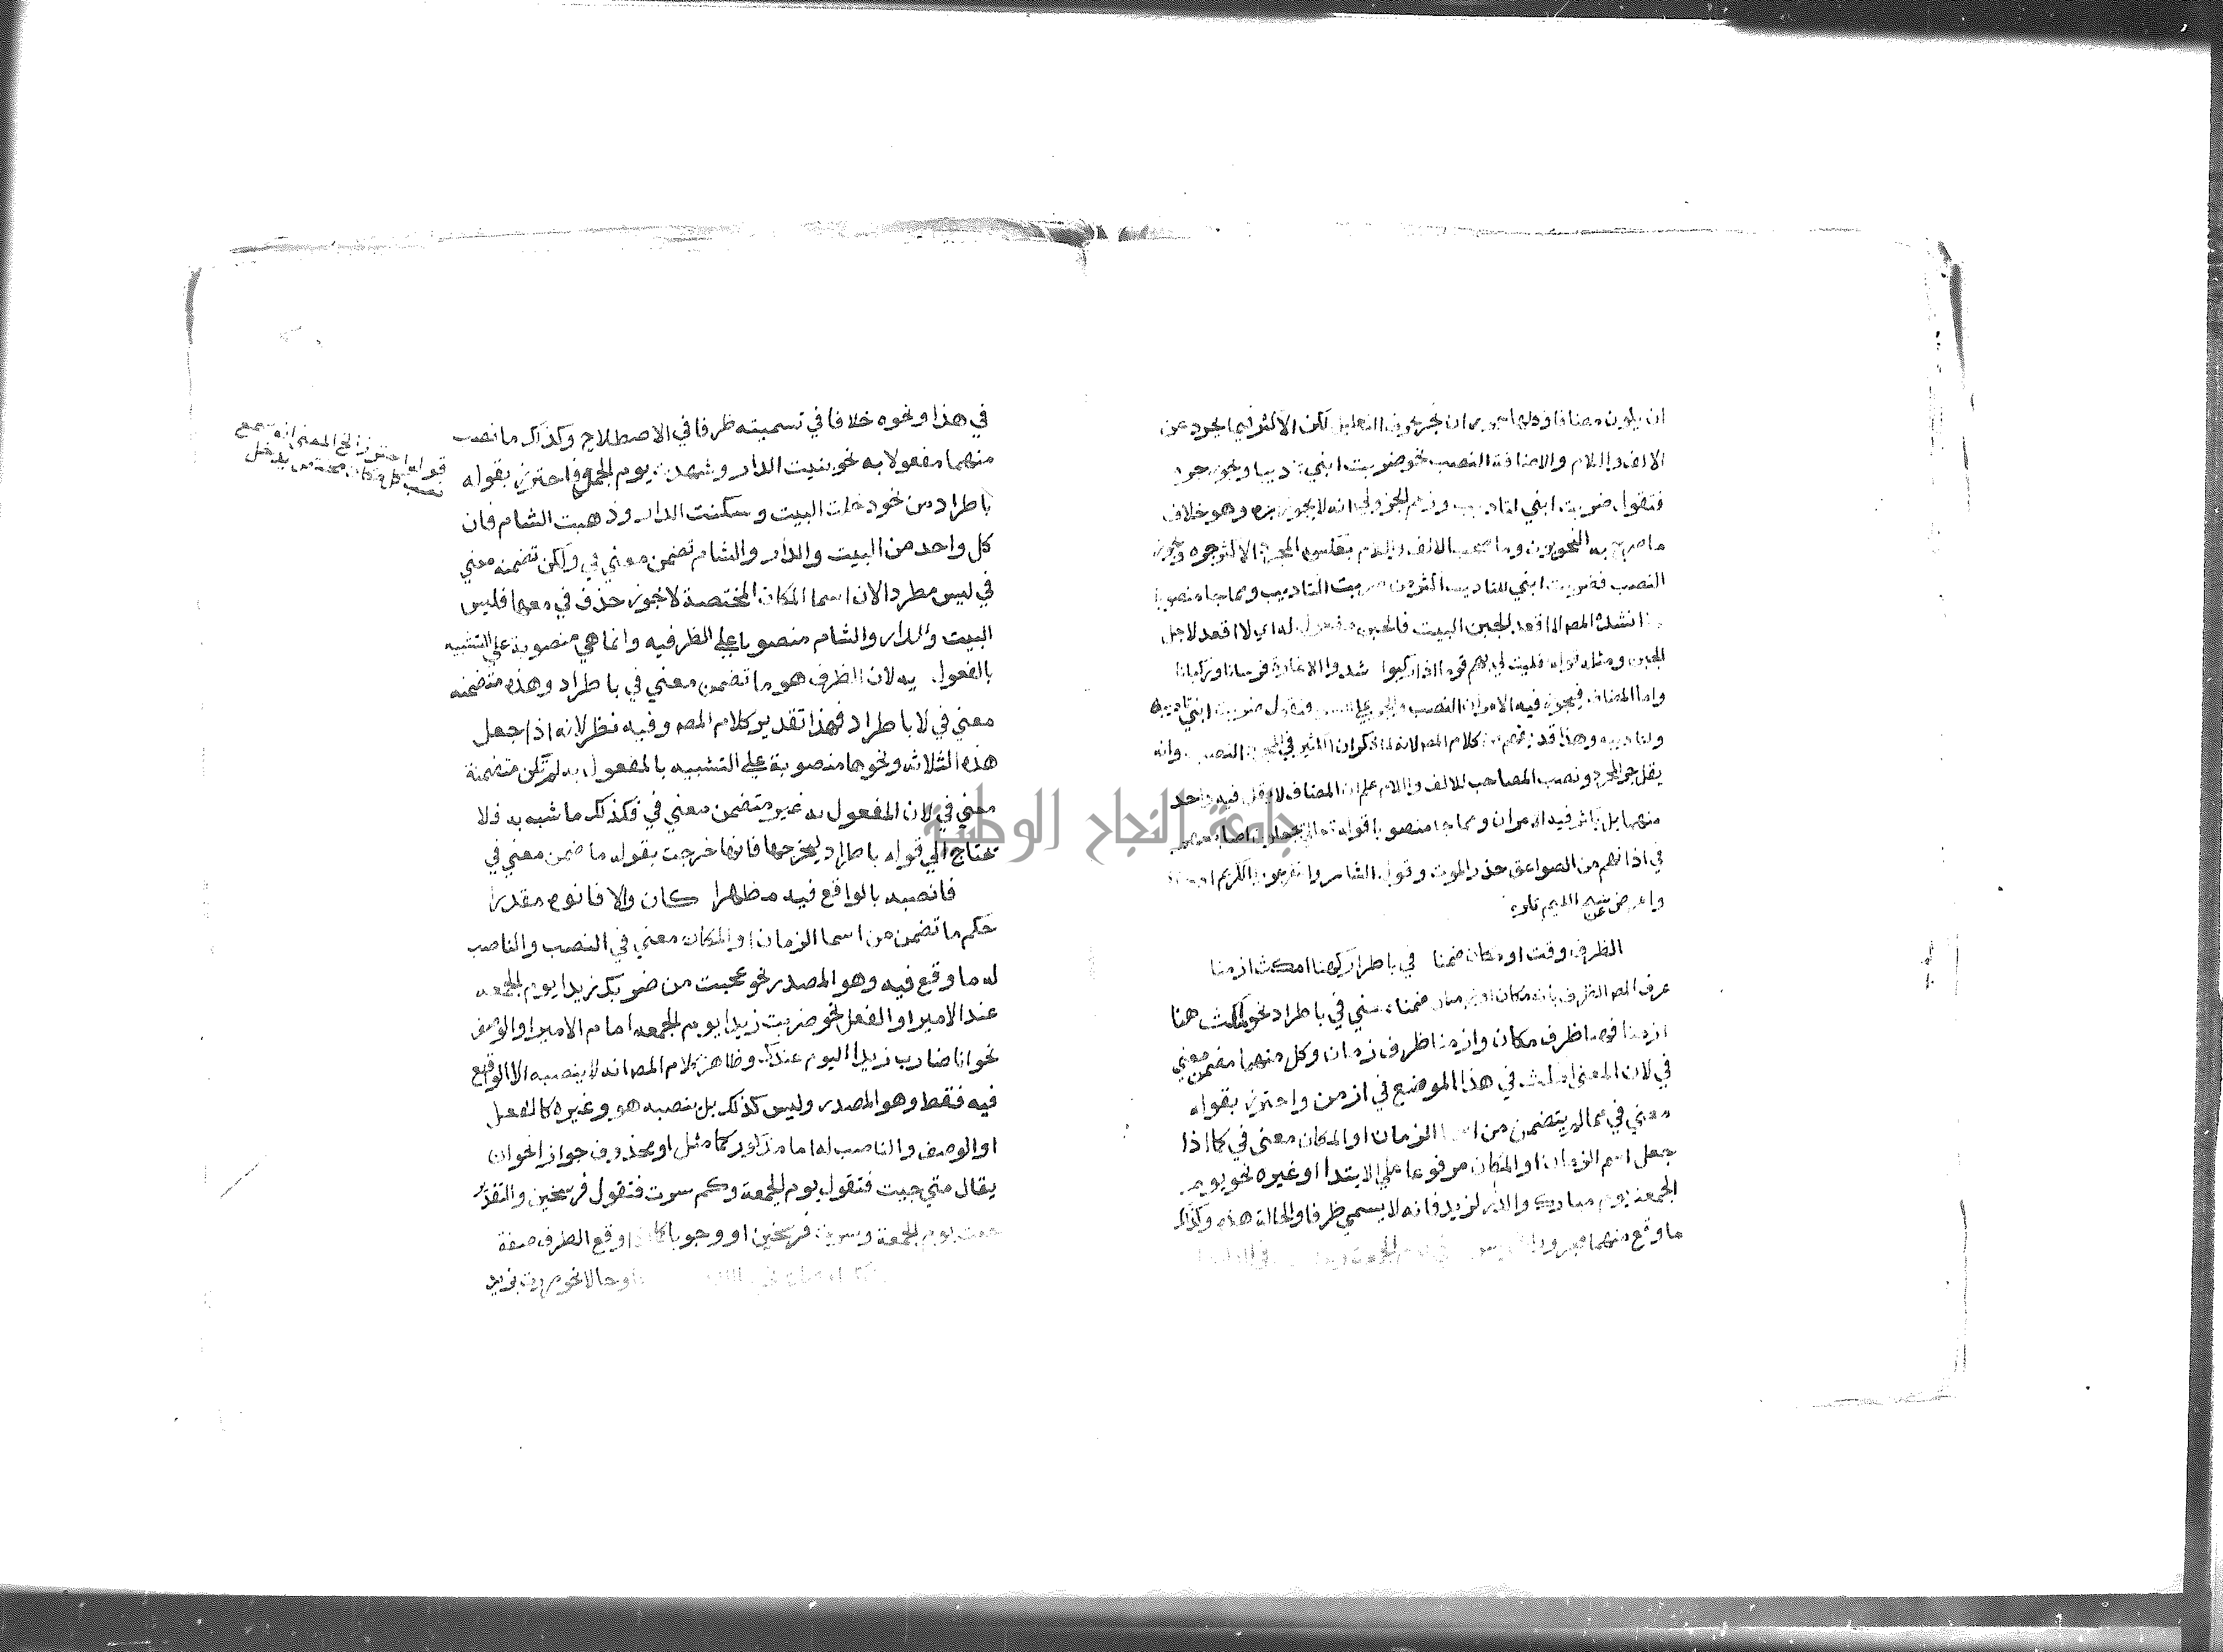 ان يكون مضافا وكلها يجوز ان تجر بحرف التعليل لكن الاكثر فيما تجرد عن
الالف واللام والاضافة النصب نحو ضربت ابني تاديبا ويجوز جره
فتقول ضربت ابني لتاديب وزعم الجزولي انه لا يجوز جره وهو خلاف
ما صرح به النحويون وما صحب الالف واللام بعكس المجرد الاكثر جره ويجوز
النصب فضربت ابني للتاديب اكثر من ضربت التاديب ومما جا منصوبا
ما انشده المصـ لا اقعد الجبن البيت فالجبن مفعول له اي لا اقعد لاجل
الجبن ومثله قوله فليت لي بهم قوما اذا ركبوا شدوا الاغارة فرسانا وركبانا
واما المضاف فيجوز فيه الامران النصب والجر علي السوا فتقول ضربت ابني تاديبه
ولتاديبه وهذا قد يفهم من كلام المصـ لانه لما ذكر ان الكثير في المجرد النصب وانه
يقل جر المجرد ونصب المصاحب للالف واللام علم ان المضاف لا يقل فيه واحد
منهما بل يكثر فيه الامران ومما جا منصوبا قوله تعالي يجعلون اصابعهم
في اذانهم من الصواعق حذر الموت وقول الشاعر واغفر عورا الكريم ادخاره
واعرض عن شتم اللئيم تكرما
الظرف وقت او مكان ضمنا في باطراد كهنا امكث ازمنا
عرف المصـ الظرف بانه مكان او زمان ضمنا معني في باطراد نحو امكث هنا
ازمنا فهنا ظرف مكان وازمنا ظرف زمان وكل منهما مضمن معني
في لان المعني امكث في هذا الموضع في ازمن واحترز بقوله
معني في مما لم يتضمن من اسما الزمان او المكان معني في كما اذا
جعل اسم الزمان او المكان مرفوعا علي الابتدا او غيره نحو يوم
الجمعة يوم مبارك والدار لزيد فانه لا يسمي ظرفا والحالة هذه وكذلك
ما وقع منهما مجرورا
في هذا ونحوه خلافا في تسميته ظرفا في الاصطلاح وكذلك ما نصب
منهما مفعولا به نحو بنيت الدار وشهدت يوم الجمل واحترز بقوله
باطراد من نحو دخلت البيت وسكنت الدار وذهبت الشام فان
كل واحد من البيت والدار والشام تضمن معني في ولكن تضمنه معني
في ليس مطردا لان اسما المكان المختصة لا يجوز حذف في معها فليس
البيت والدار والشام منصوبا علي الظرفيه وانما هي منصوبة علي التشبيه
بالمفعول به لان الظرف هو ما تضمن معني في باطراد وهذه متضمنه
معني في لا باطراد فهذا تقدير كلام المصـ وفيه نظر لانه اذا جعل
هذه الثلاثه ونحوها منصوبة علي التشبيه بالمفعول به لم تكن متضمنة
معني في لان المفعول به غير متضمن معني في فكذلك ما شبه به فلا
تحتاج الي قوله باطراد ليخرجها فانها خرجت بقوله ما ضمن معني في
فانصبه بالواقع فيه مظهرا كان والا فانوه مقدرا
حكم ما تضمن من اسما الزمان او المكان معني في النصب والناصب
له ما وقع فيه وهو المصدر نحو عجبت من ضربك زيدا يوم الجمعه
عند الامير او الفعل نحو ضربت زيدا يوم الجمعه امام الامير او الوصف
نحو انا ضارب زيدا اليوم عندك وظاهر كلام المصـ انه لا ينصبه الا الواقع
فيه فقط وهو المصدر وليس كذلك بل ينصبه هو وغيره كالفعل
او الوصف والناصب له اما مذكور كما مثل او محذوف جوازا نحو ان
يقال متي جيت فتقول يوم الجمعة وكم سرت فتقول فرسخين والتقدير
جيت يوم الجمعة وسرت فرسخين او وجوبا كما اذا وقع الظرف صفة
او حالا نحو مررت بزيد
قوله احترز الخ المعني انه سمع
نصب كل مكان مختص مع دخل
جامعة النجاح الوطنية